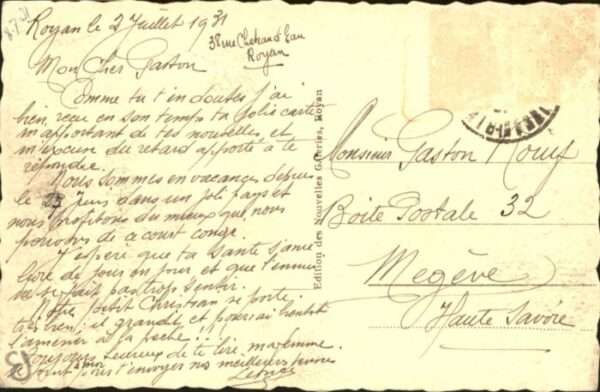 8.7.31
Royan le 2 Juillet 1931
38 rue
Royan
Mon Cher Gaston
Comme tu t'en doutes j'ai
bien reçu en son temps ta jolie carte
m'apportant de tes nouvelles et
m'excuse du retard apporté à te
répondre.
Nous sommes en vacances depuis
le 23 Juin dans un joli pays et
nous profitons du mieux que nous
pouvons de ce court congé.
J'espère que ta santé s'amé
liore de jour en jour et que l'ennui
ne se fait pas trop sentir.
Notre petit Christian se porte
très bien; il grandit et pourrai bientôt
l'amener à la pêche!!!
Toujours heureux de te lire, ma femme
et moi t'envoyons nos meilleurs
Edition des Nouvelles Galeries, Royan
Monsieur Gaston
Boite Postale 32
Megève
Haute Savoie